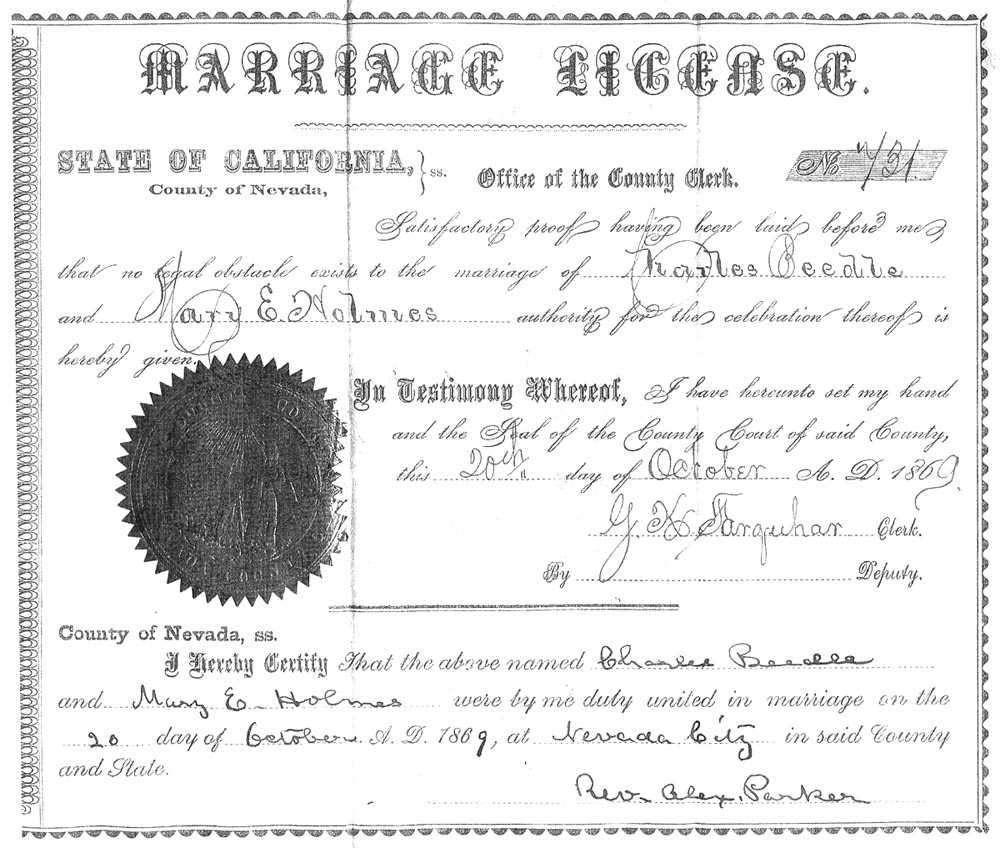 MARRIAGE LICENSE.
STATE OF CALIFORNIA, } ss.
County of Nevada,
Office of the County Clerk.
No 731
Satisfactory proof having been laid before me
that no legal obstacle exists to the marriage of Charles Beedle
and Mary E. Holmes authority for the celebration thereof is
hereby given.
In Testimony Whereof, I have hereunto set my hand
and the Seal of the County Court of said County,
this 20th day of October A. D. 1869
G. K. Farquhar Clerk.
By Deputy.
County of Nevada, ss.
I Hereby Certify That the above named Charles Beedle
and Mary E. Holmes were by me duly united in marriage on the
20 day of October A. D. 1869, at Nevada City in said County
and State.
Rev. Alex. Parker